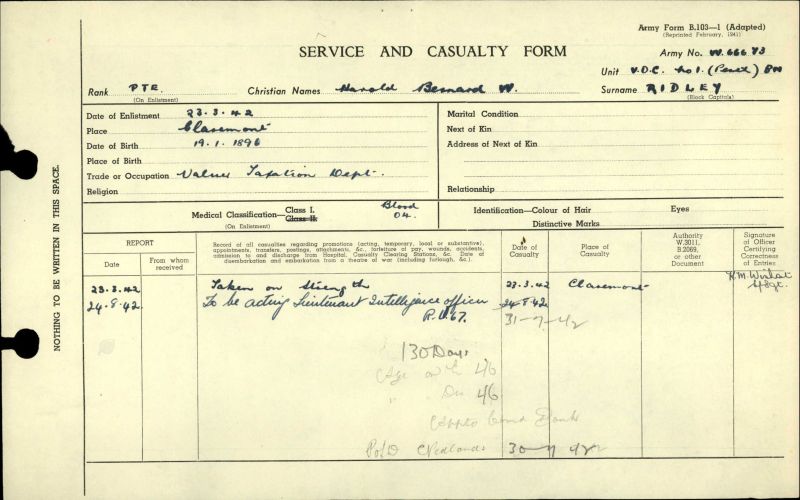 Army Form B.103—1 (Adapted)
(Reprinted February, 1941)
SERVICE AND CASUALTY FORM
Army No. W.66673
Unit V.D.C. No 1. (Perth) BN
Rank PTE. Christian Names Harold Bernard W. Surname RIDLEY
(On Enlistment) (Block Capitals)
Date of Enlistment 23.3.42
Place Claremont
Date of Birth 19.1.1896
Place of Birth
Trade or Occupation Valuer Taxation Dept.
Religion
Marital Condition
Next of Kin
Address of Next of Kin
Relationship
Medical Classification—Class I. Class II. Blood O4.
(On Enlistment)
Identification—Colour of Hair Eyes
Distinctive Marks
REPORT
Date
From whom received
Record of all casualties regarding promotions (acting, temporary, local or substantive), appointments, transfers, postings, attachments, &c., forfeiture of pay, wounds, accidents, admission to and discharge from Hospital, Casualty Clearing Stations, &c. Date of disembarkation and embarkation from a theatre of war (including furlough, &c.).
Date of Casualty
Place of Casualty
Authority W.3011, B.2069, or other Document
Signature of Officer Certifying Correctness of Entries
23.3.42 Taken on Strength 23.3.42 Claremont
24.8.42 To be acting Lieutenant Intelligence officer 24.8.42
R.O.67. 31-7-42
130 Days
Age on E 46
" Dis 46
NOTHING TO BE WRITTEN IN THIS SPACE.